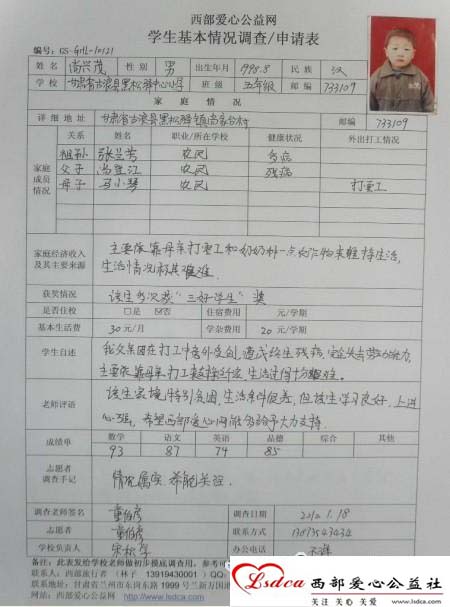 西部爱心公益网
学生基本情况调查/申请表
编号：GS-GHL-10121
姓名 尚兴茂 性别 男 出生年月 1998.8 民族 汉
学校 甘肃省古浪县黑松驿中心小学 班级 五年级 邮编 733109
家庭情况
详细地址 甘肃省古浪县黑松驿镇尚家台村 邮编 733109
家庭成员情况 关系 姓名 职业/所在学校 健康状况 外出打工情况
祖孙 张兰芳 农民 多病
父子 尚登江 农民 残病
母子 马小琴 农民 打零工
家庭经济收入及其主要来源
主要依靠母亲打零工和奶奶种一点农作物来维持生活,
生活情况极其艰难.
获奖情况 该生多次获"三好学生"奖
是否住校 □是 ☑否 住宿费用 元/学期
基本生活费 30元/月 学杂费用 20元/学期
学生自述
我父亲因在打工中意外受创,造成终生残病,完全失去劳动能力,
主要依靠母亲打工来维持,生活过得十分艰难.
老师评语
该生家境特别贫困,生活条件很差,但该生学习良好,上进
心强,希望西部爱心网能够给予大力支持.
成绩单 数学 语文 英语 品德 综合 其他
93 87 74 85
志愿者调查手记 情况属实,希能关注.
调查老师签名 调查日期 2012.1.18
志愿者 联系方式
学校负责人 办公电话
备注：此表发给学校老师做初步摸底调查用，参考可
联系人：西部旅行者 （林子 13919430001）QQ
地址：甘肃省兰州市东岗东路1999号兰新万国
西部爱心公益网 http://www.lsdca.org
Lsdca 西部爱心公益社
关注 关心 关爱 www.lsdca.org